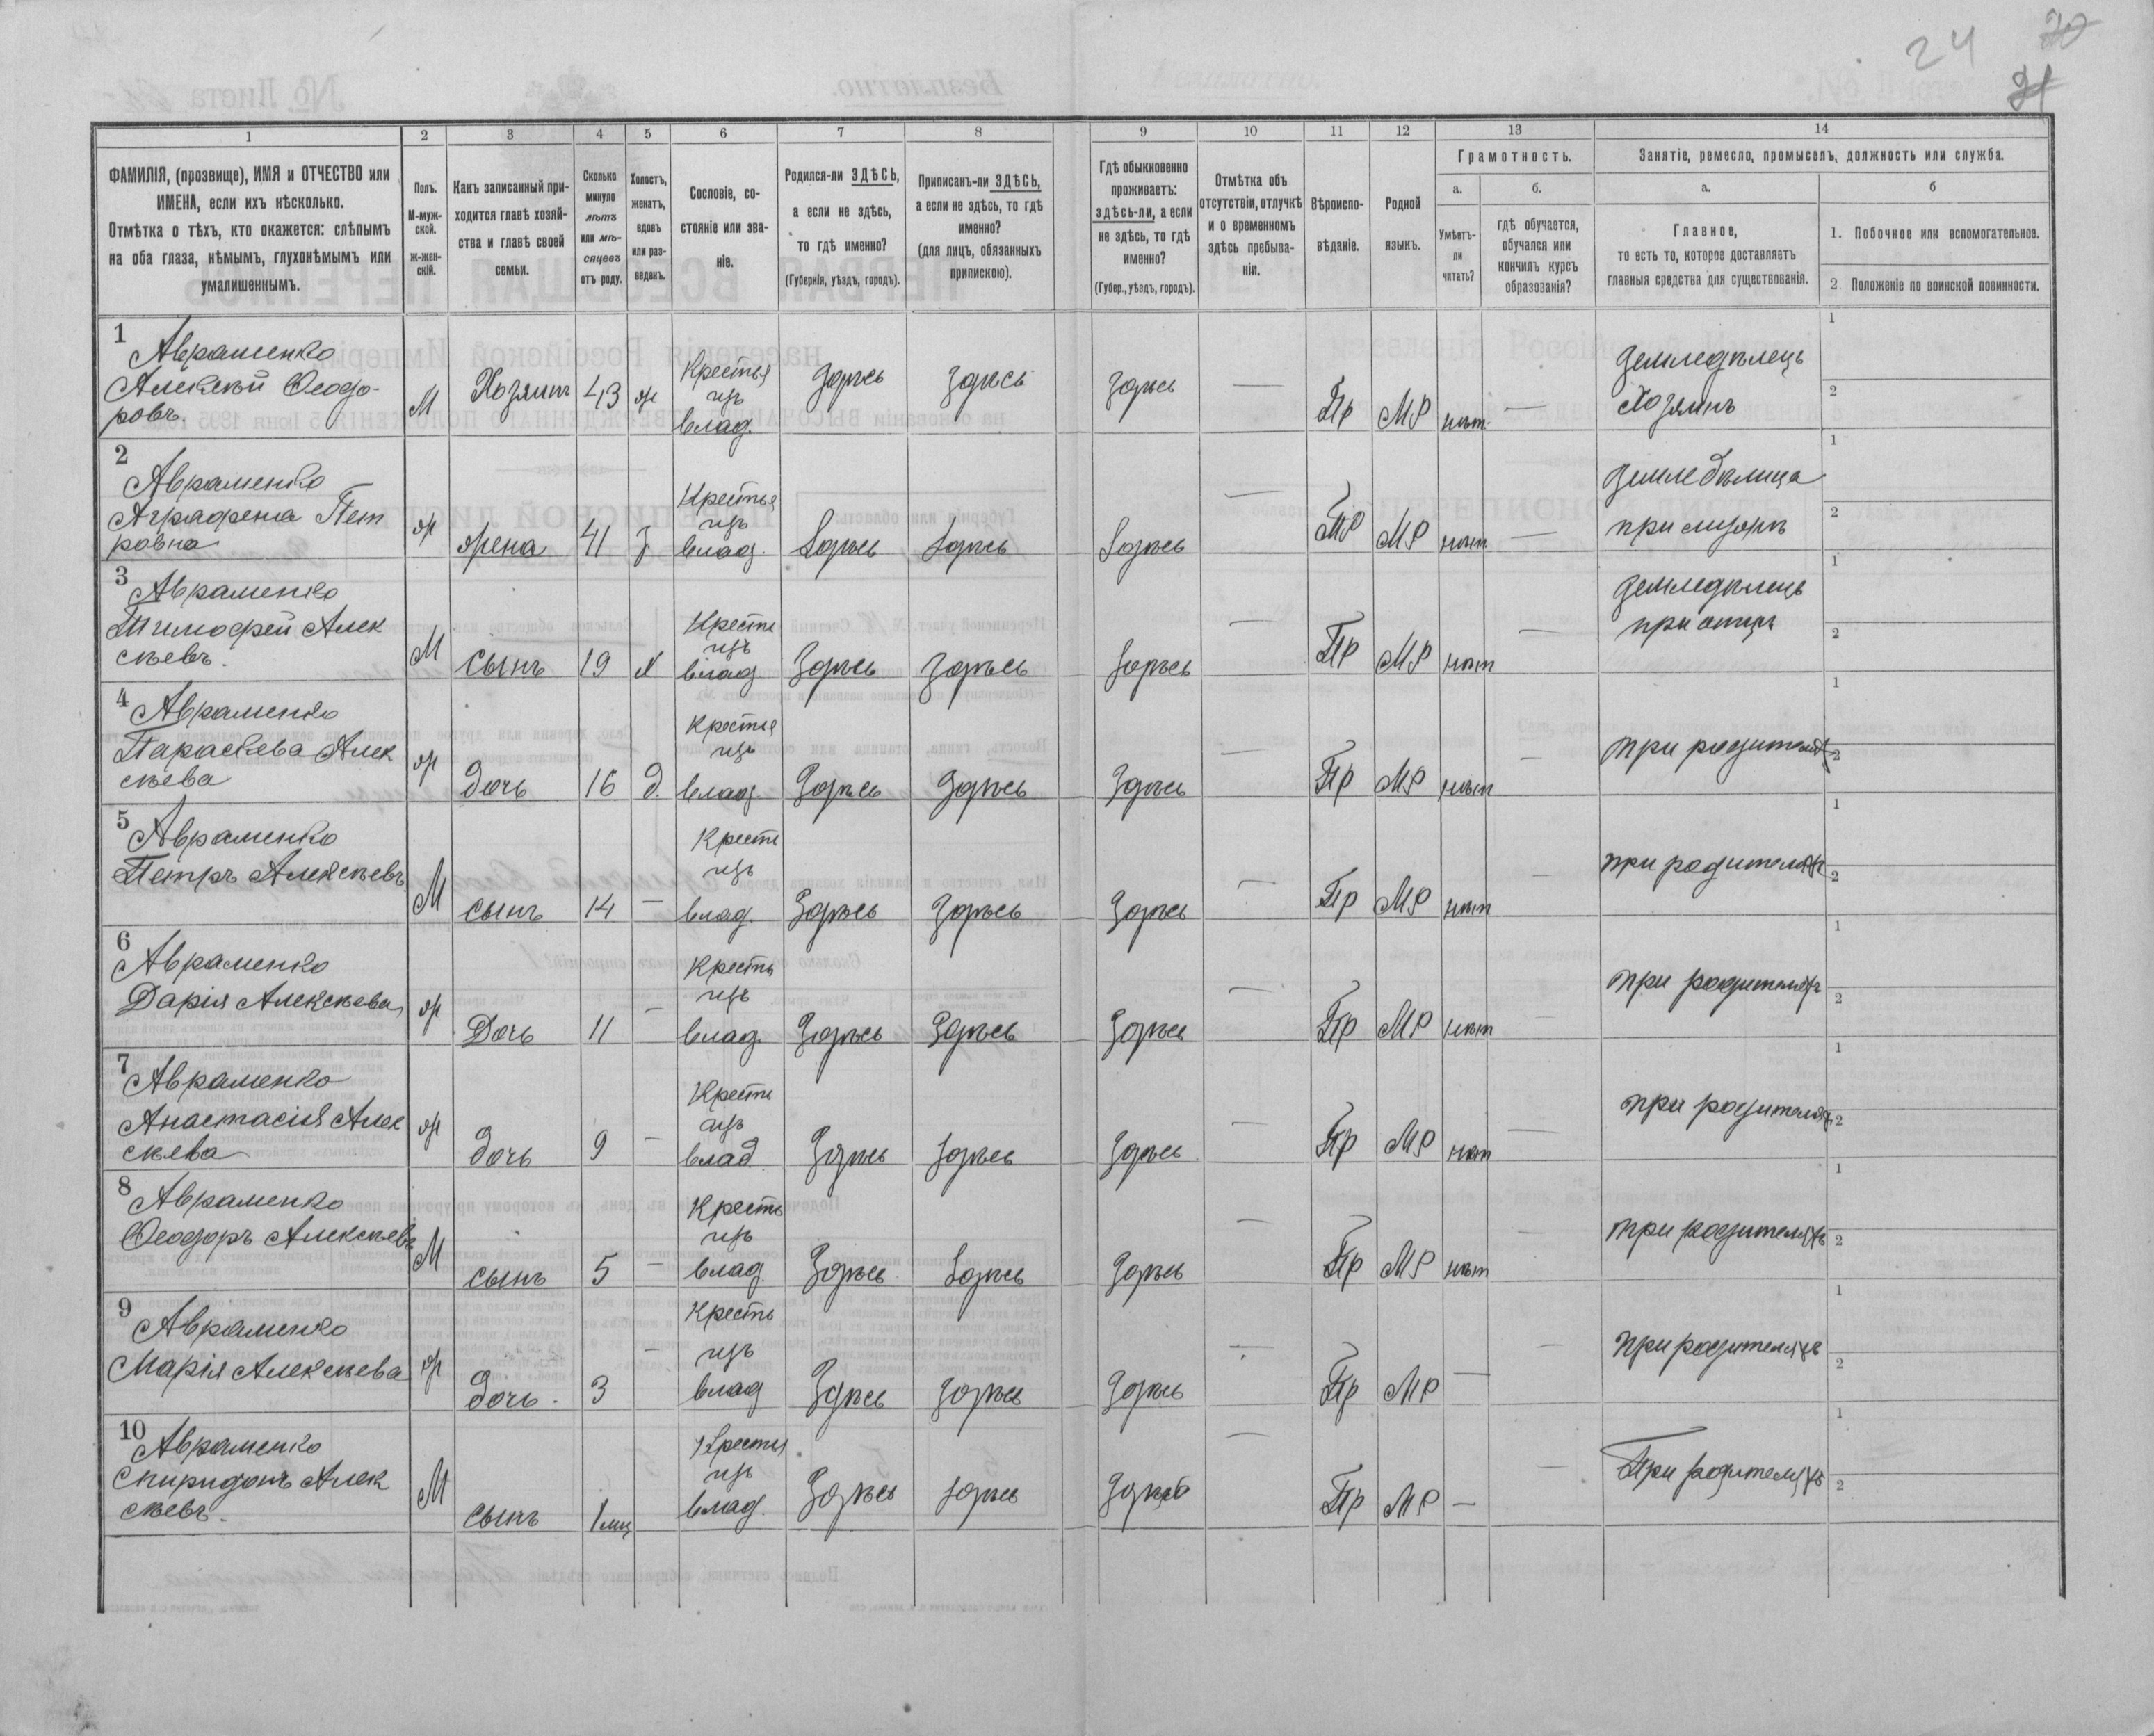 24
1 2 3 4 5 6 7 8 9 10 11 12 13 14
ФАМИЛІЯ, (прозвище), ИМЯ и ОТЧЕСТВО или
ИМЕНА, если ихъ нѣсколько.
Отмѣтка о тѣхъ, кто окажется: слѣпымъ
на оба глаза, нѣмымъ, глухонѣмымъ или
умалишеннымъ.
Полъ.
М-муж-
ской.
Ж-жен-
скій.
Какъ записанный при-
ходится главѣ хозяй-
ства и главѣ своей
семьи.
Сколько
минуло
лѣтъ
или мѣ-
сяцевъ
отъ роду.
Холостъ,
женатъ,
вдовъ
или раз-
веденъ.
Сословіе, со-
стояніе или зва-
ніе.
Родился-ли ЗДѢСЬ,
а если не здѣсь,
то гдѣ именно?
(Губернія, уѣздъ, городъ).
Приписанъ-ли ЗДѢСЬ,
а если не здѣсь, то гдѣ
именно?
(для лицъ, обязанныхъ
припискою).
Гдѣ обыкновенно
проживаетъ:
здѣсь-ли, а если
не здѣсь, то гдѣ
именно?
(Губер., уѣздъ, городъ).
Отмѣтка объ
отсутствіи, отлучкѣ
и о временномъ
здѣсь пребыва-
ніи.
Вѣроиспо-
вѣданіе.
Родной
языкъ.
Грамотность.
а.
Умѣетъ-
ли
читать?
б.
гдѣ обучается,
обучался или
кончилъ курсъ
образованія?
Занятіе, ремесло, промыселъ, должность или служба.
а.
Главное,
то есть то, которое доставляетъ
главныя средства для существованія.
б
1. Побочное или вспомогательное.
2. Положеніе по воинской повинности.
1
Авраменко
Алексѣй Ѳеодо-
ровъ.
М Хозяинъ 43 ж
Крестья
изъ
влад.
Здѣсь здѣсь здѣсь — Пр МР нѣт —
Земледѣлецъ
Хозяинъ
1
2
2
Авраменко
Аграфена Пет
ровна
ж жена 41 з
Крестья
изъ
влад.
Здѣсь здѣсь Здѣсь — Пр МР нѣт —
Земледѣлица
при мужѣ
1
2
3
Авраменко
Тимофей Алек
сѣевъ.
М сынъ 19 х
Крестя
изъ
влад
Здѣсь здѣсь здѣсь — Пр МР нѣт —
Земледѣлецъ
при отцѣ
1
2
4
Авраменко
Параскева Алек
сѣева
ж дочь 16 д.
Крестья
изъ
влад.
Здѣсь здѣсь здѣсь — Пр МР нѣт —
при родителяхъ
1
2
5
Авраменко
Петръ Алексѣевъ
М сынъ 14 —
Крестя
изъ
влад.
Здѣсь здѣсь здѣсь — Пр МР нѣт —
при родителяхъ
1
2
6
Авраменко
Дарія Алексѣева
ж Дочь 11 —
Кресть
изъ
влад.
Здѣсь здѣсь здѣсь — Пр МР нѣт —
при родителяхъ
1
2
7
Авраменко
Анастасія Алек
сѣева
ж дочь 9 —
Крестя
изъ
влад
Здѣсь здѣсь здѣсь — Пр МР нѣт —
при родителях
1
2
8
Авраменко
Ѳеодоръ Алексѣевъ
М сынъ 5 —
Кресть
изъ
влад.
Здѣсь здѣсь здѣсь — Пр МР нѣт —
при родителяхъ
1
2
9
Авраменко
Марія Алексѣева
ж дочь. 3 —
Кресть
изъ
влад
Здѣсь здѣсь здѣсь — Пр МР — —
при родителяхъ
1
2
10
Авраменко
Спиридонъ Алек
сѣевъ.
М сынъ 1 мц
Крестья
изъ
влад.
Здѣсь здѣсь здѣсь — Пр МР — —
При родителяхъ
1
2